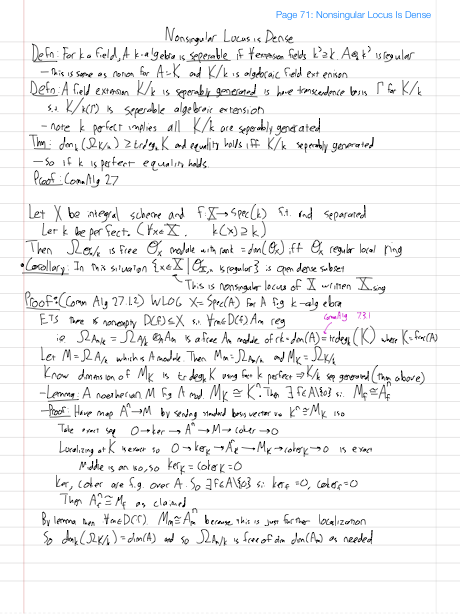 Page 71: Nonsingular Locus Is Dense
Nonsingular Locus is Dense
Defn: For k a field, A k-algebra is seperable if ∀ extension fields k'⊇k, A⊗ₖk' is regular
- This is same as notion for A=K and K/k is algebraic field extension
Defn: A field extension K/k is seperably generated is have transcendence basis Γ for K/k
s.t. K/k(Γ) is seperable algebraic extension
- note k perfect implies all K/k are seperably generated
Thm: dimₖ(Ω_{K/k}) ≥ tr.deg K and equality holds iff K/k seperably generated
- So if k is perfect equality holds
Proof: Comm Alg 27
Let X be integral scheme and f: X→Spec(k) f.t. and separated
Let k be perfect. (∀x∈X, k(x)⊇k)
Then Ω_{𝒪ₓ/k} is free 𝒪ₓ module with rank = dim(𝒪ₓ) iff 𝒪ₓ regular local ring
• Corollary: In this situation {x∈X | 𝒪_{X,x} is regular} is open dense subset
This is nonsingular locus of X written X_sing
Proof: (Comm Alg 27.12) WLOG X=Spec(A) for A f.g. k-algebra
CommAlg 23.1
ETS there is nonempty D(f)⊆X s.t. ∀m∈D(f) Aₘ reg
ie Ω_{Aₘ/k} = Ω_{A/k}⊗Aₘ is a free Aₘ module of rk = dim(A) = trdegₖ(K) where K=frac(A)
Let M=Ω_{A/k} which is A module. Then Mₘ=Ω_{Aₘ/k} and M_K=Ω_{K/k}
Know dimension of M_K is tr.degₖK using fact k perfect ⇒ K/k sep generated (thm above)
- Lemma: A noetherian M f.g A mod M_K ≅ Kⁿ. Then ∃ f∈A\{0} s.t. M_f≅A_fⁿ
- Proof: Have map Aⁿ→M by sending standard basis vectors to Kⁿ≅M_K iso
Take exact seq 0→ker→Aⁿ→M→coker→0
Localizing at K is exact so 0→ker_K→A_Kⁿ→M_K→coker_K→0 is exact
Middle is an iso, so ker_K=coker_K=0
ker, coker are f.g. over A. So ∃f∈A\{0} s.t. ker_f=0, coker_f=0
Then A_fⁿ≅M_f as claimed
By lemma then ∀m∈D(f). Mₘ≅Aₘⁿ because this is just further localization
So dimₖ(Ω_{K/k})=dim(A) and so Ω_{Aₘ/k} is free of dim dim(Aₘ) as needed